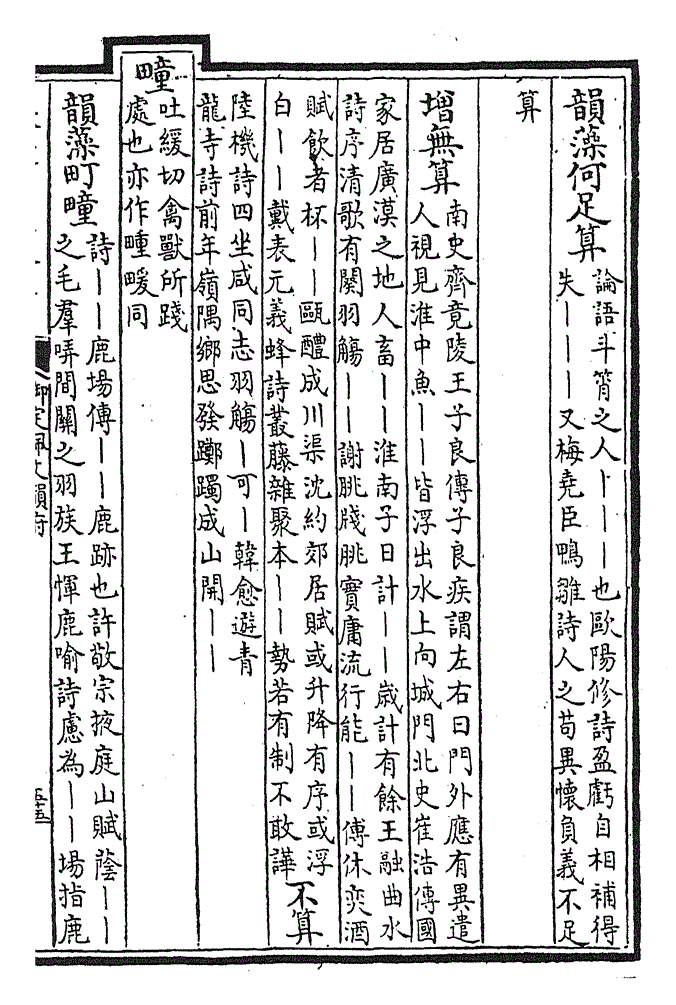 韻藻何足算論語斗筲之人丨丨丨也歐陽修詩盈虧自相補得
失丨丨丨又梅堯臣鴨雛詩人之苟異懷負義不足
算
增無算南史齊竟陵王子良傳子良疾謂左右曰門外應有異遣
人視見淮中魚丨丨皆浮出水上向城門北史崔浩傳國
家居廣漠之地人畜丨丨淮南子日計丨丨歲計有餘王融曲水
詩序清歌有闋羽觴丨丨謝脁牋脁實庸流行能丨丨傅休奕酒
賦飲者杯丨丨甌醴成川渠沈約郊居賦或升降有序或浮
白丨丨戴表元義蜂詩叢藤雜聚本丨丨勢若有制不敢譁不算
陸機詩四坐咸同志羽觴丨可丨韓愈遊青
龍寺詩前年嶺隅鄉思發躑躅成山開丨丨
疃吐緩切禽獸所踐
處也亦作畽暖同
韻藻町疃詩丨丨鹿場傳丨丨鹿跡也許敬宗掖庭山賦蔭丨丨
之毛羣哢間關之羽族王惲鹿喻詩慮為丨丨場指鹿
御定佩文韻府